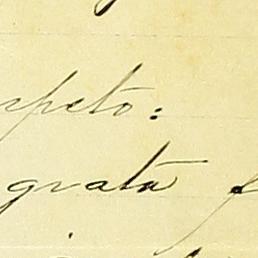 speto:
grata